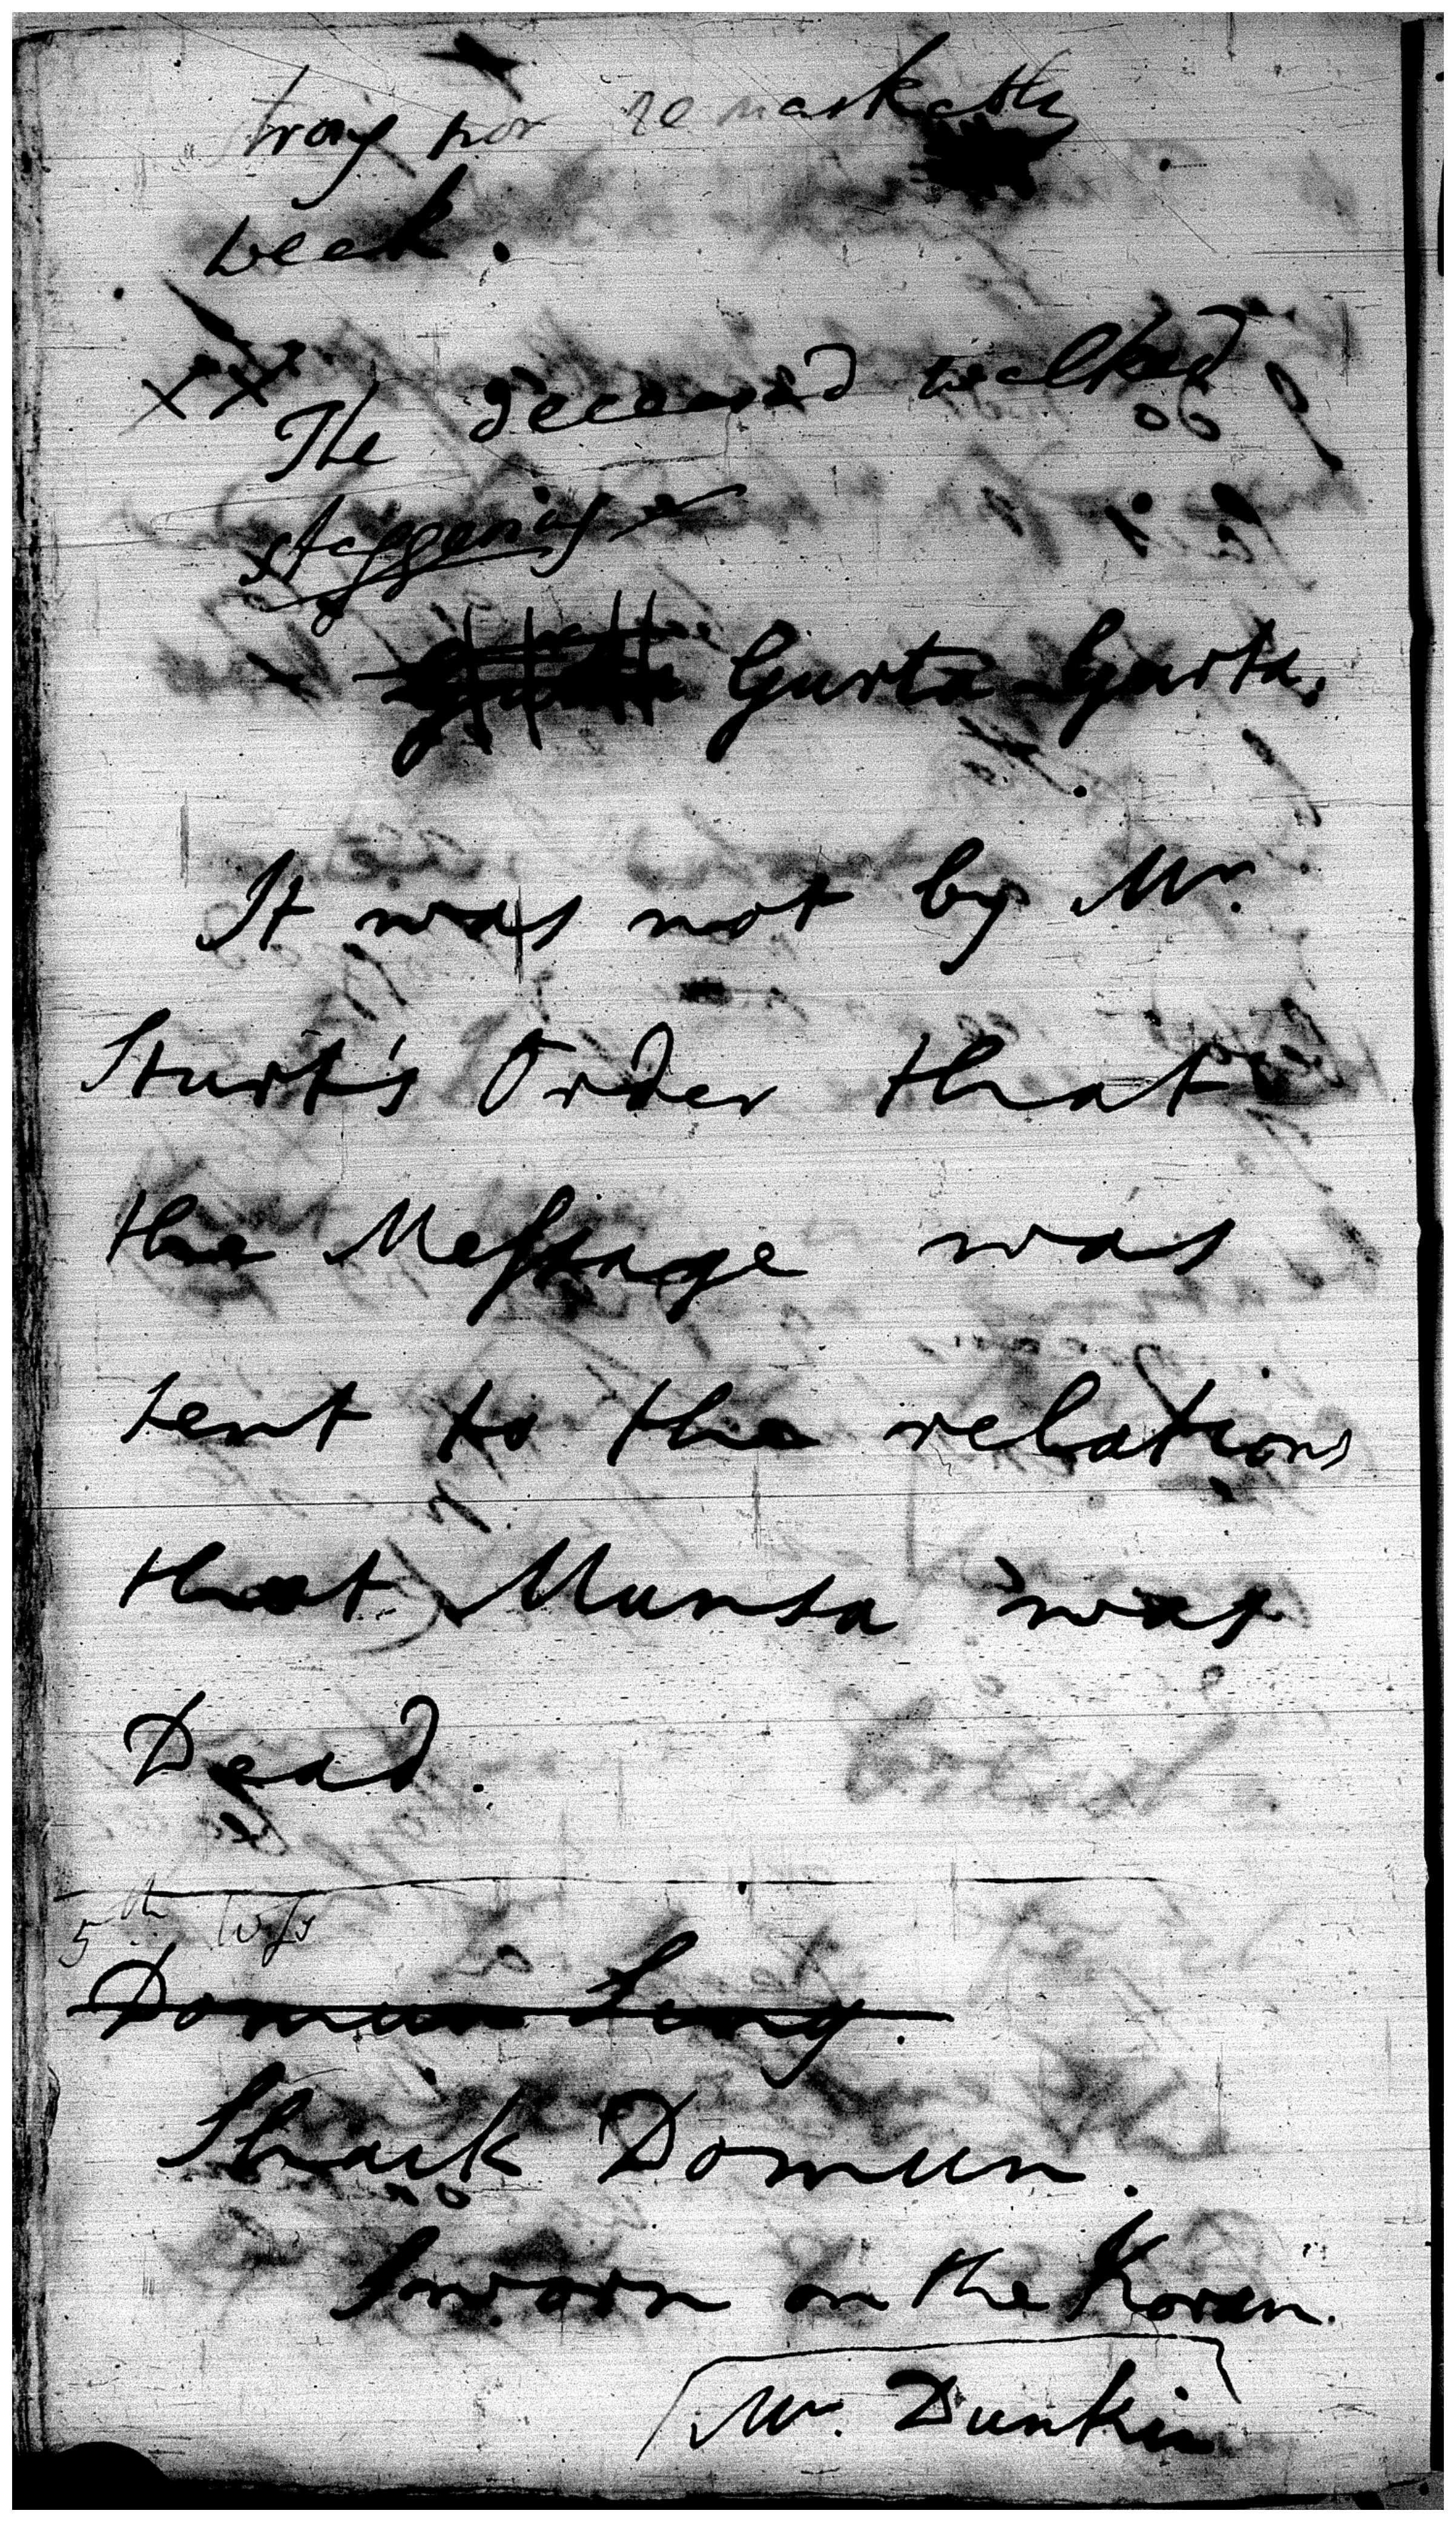 strong nor remarkably
weak.
XX
The deceased walked
staggering
Gurta Gurta,
It was not by Mr.
Sturt's Order that
the Message was
sent to the relations
that Munsa was
Dead.
5th Wss
Domun Sing.
Shaik Domun.
Sworn on the Koran.
Mr. Dunkin